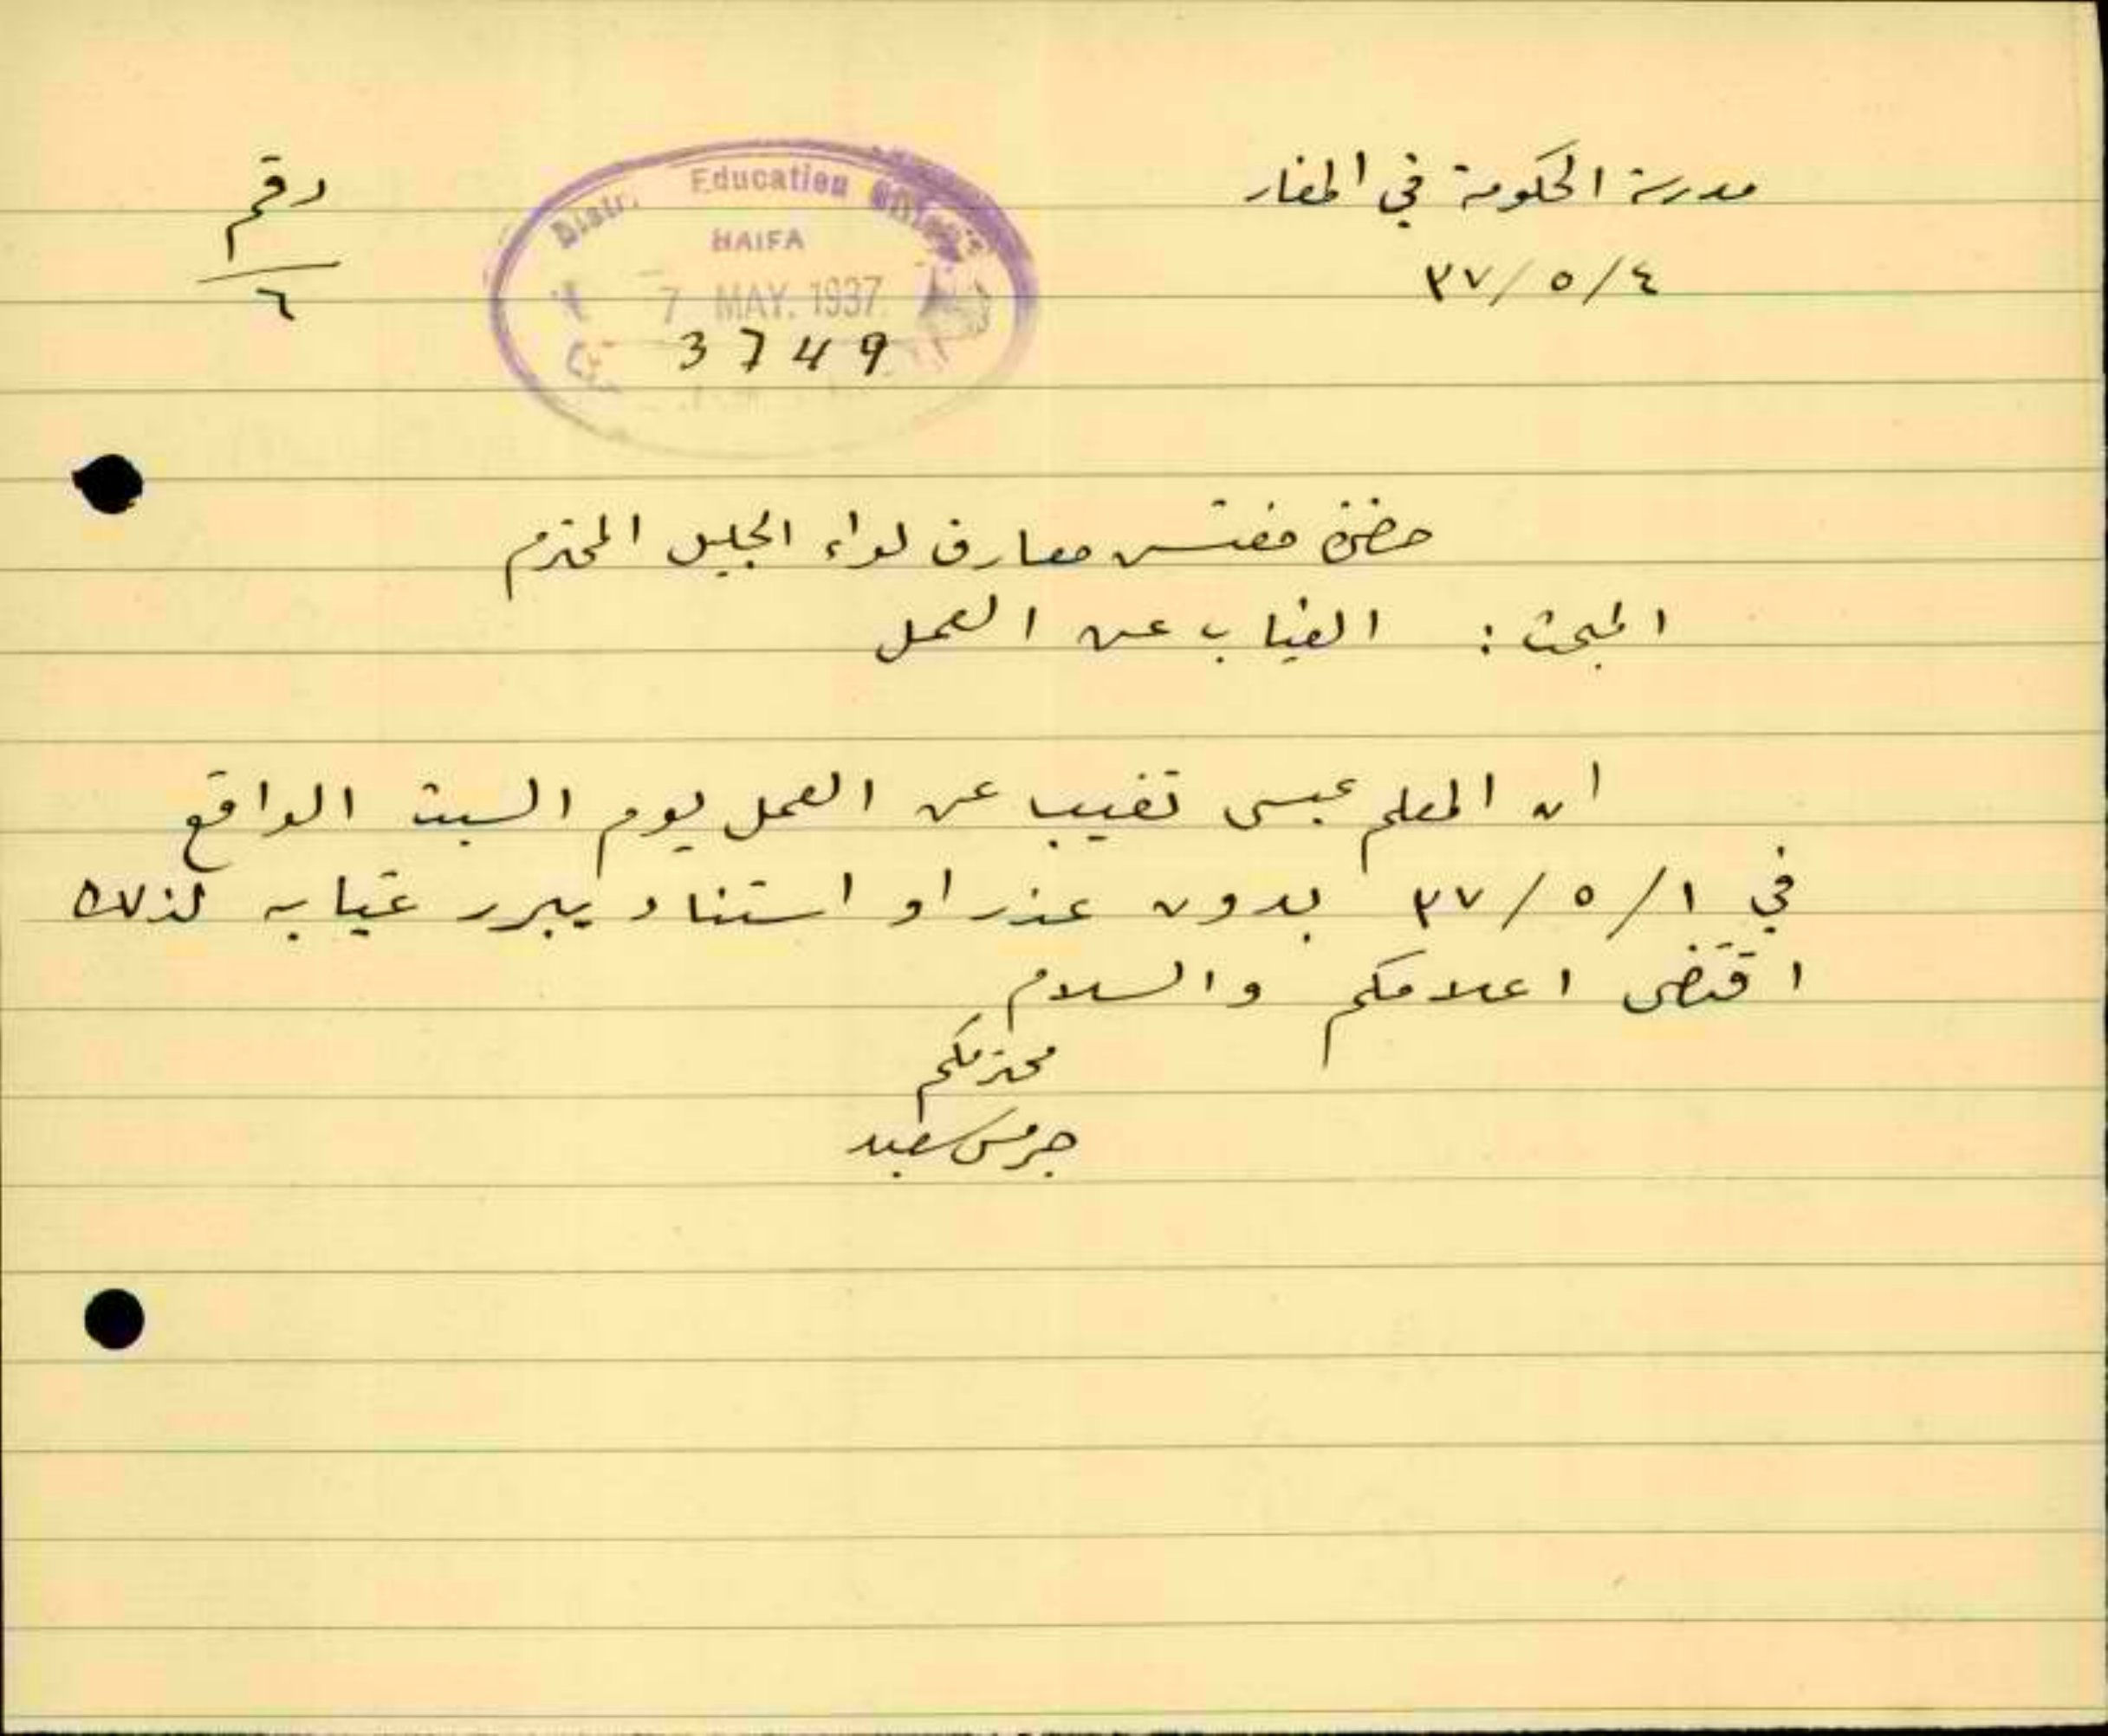 مدرسة الحكومة في المغار
رقم
٣٧/٥/٤
٦
Distr. Education Office
HAIFA
7 MAY. 1937
3749
حضرة مفتش معارف لواء الجليل المحترم
المبحث : الغياب عن العمل
ان المعلم عيسى تغيب عن العمل يوم السبت الواقع
في ٣٧/٥/١ بدون عذر او استناد يبرر غيابه لذلك
اقتضى اعلامكم والسلام
محترمكم
جرمس سعيد